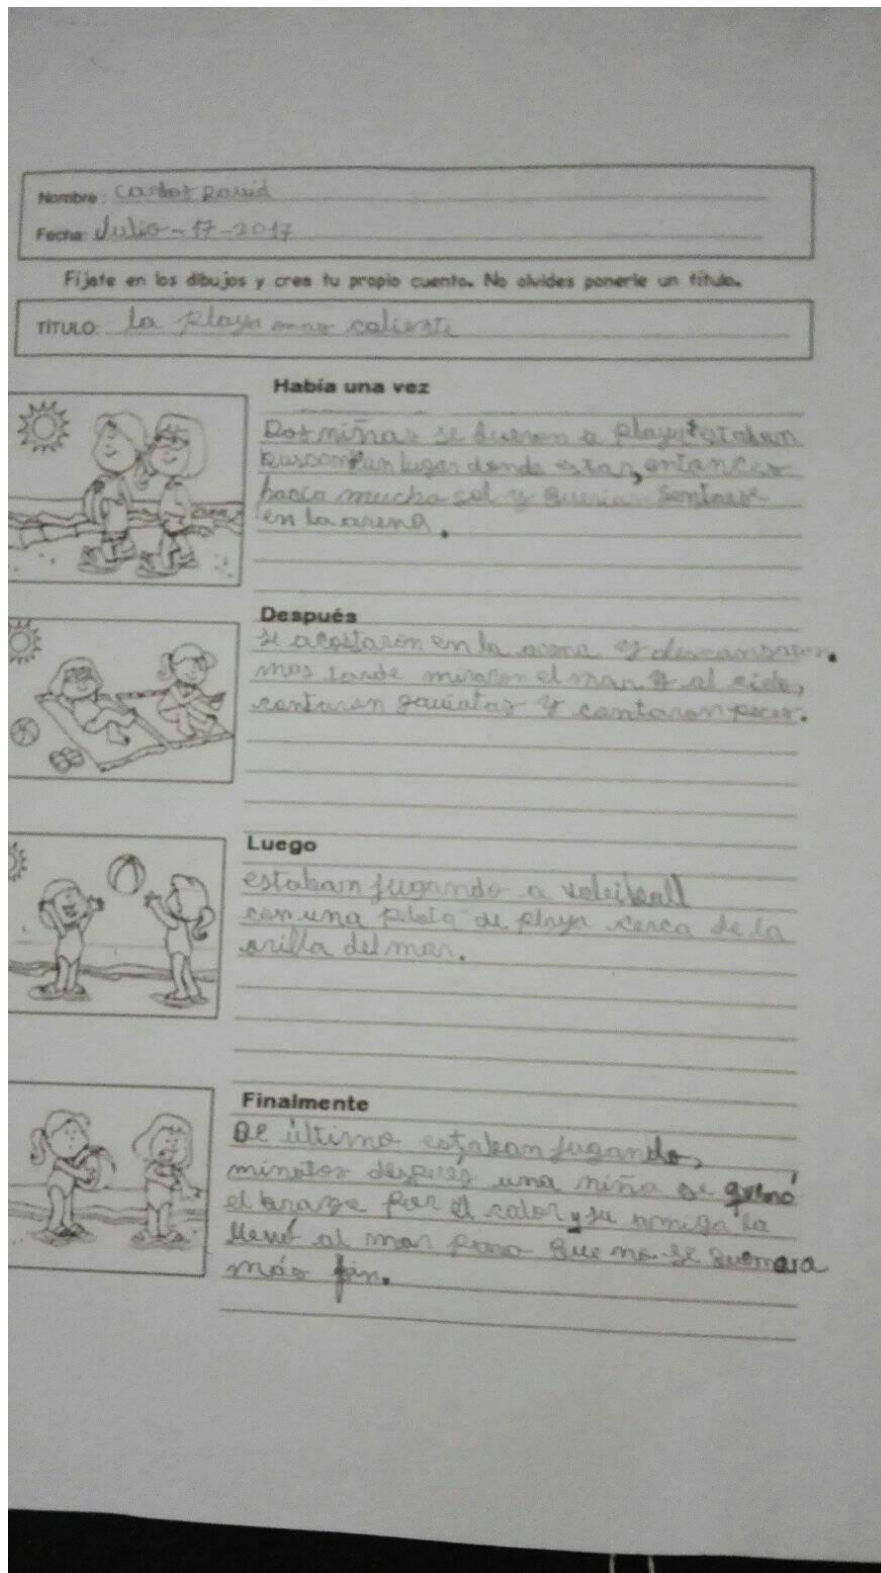 Nombre: Carlos David
Fecha: Julio-17-2017
Fíjate en los dibujos y crea tu propio cuento. No olvides ponerle un título.
TÍTULO: la playa mas caliente
Había una vez
Dos niñas se fueron a playa estaban
buscon un lugar donde estar, entances
hacia mucho sol y querian sentarse
en la arena.
Después
se acostaron en la arena y descansaron.
mas tarde miraron el mar y al cielo,
contaron gaviotas y contaron peces.
Luego
estaban jugando a voleiball
con una pelota de playa cerca de la
orilla del mar.
Finalmente
De último estaban jugando,
minutos después una niña se qumó
el brazo por el calor y su amiga la
llevó al mar para que no se quemara
más fin.